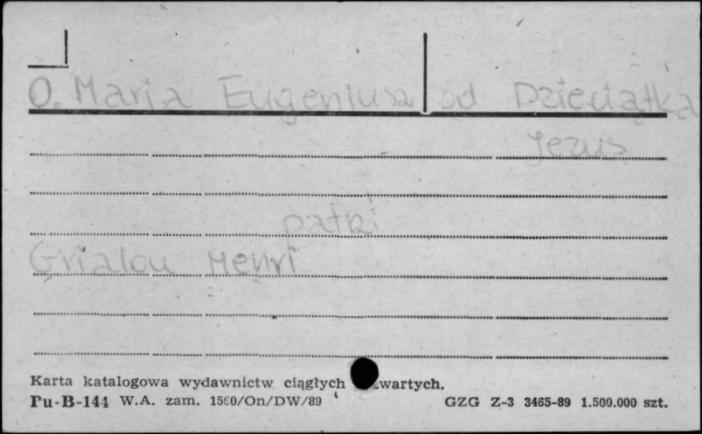 O. Maria Eugeniusz od Dzieciątka
Jezus
patrz
Grialou Henri
Karta katalogowa wydawnictw ciągłych wartych.
Pu-B-144 W.A. zam. 1560/On/DW/89 GZG Z-3 3465-89 1.500.000 szt.